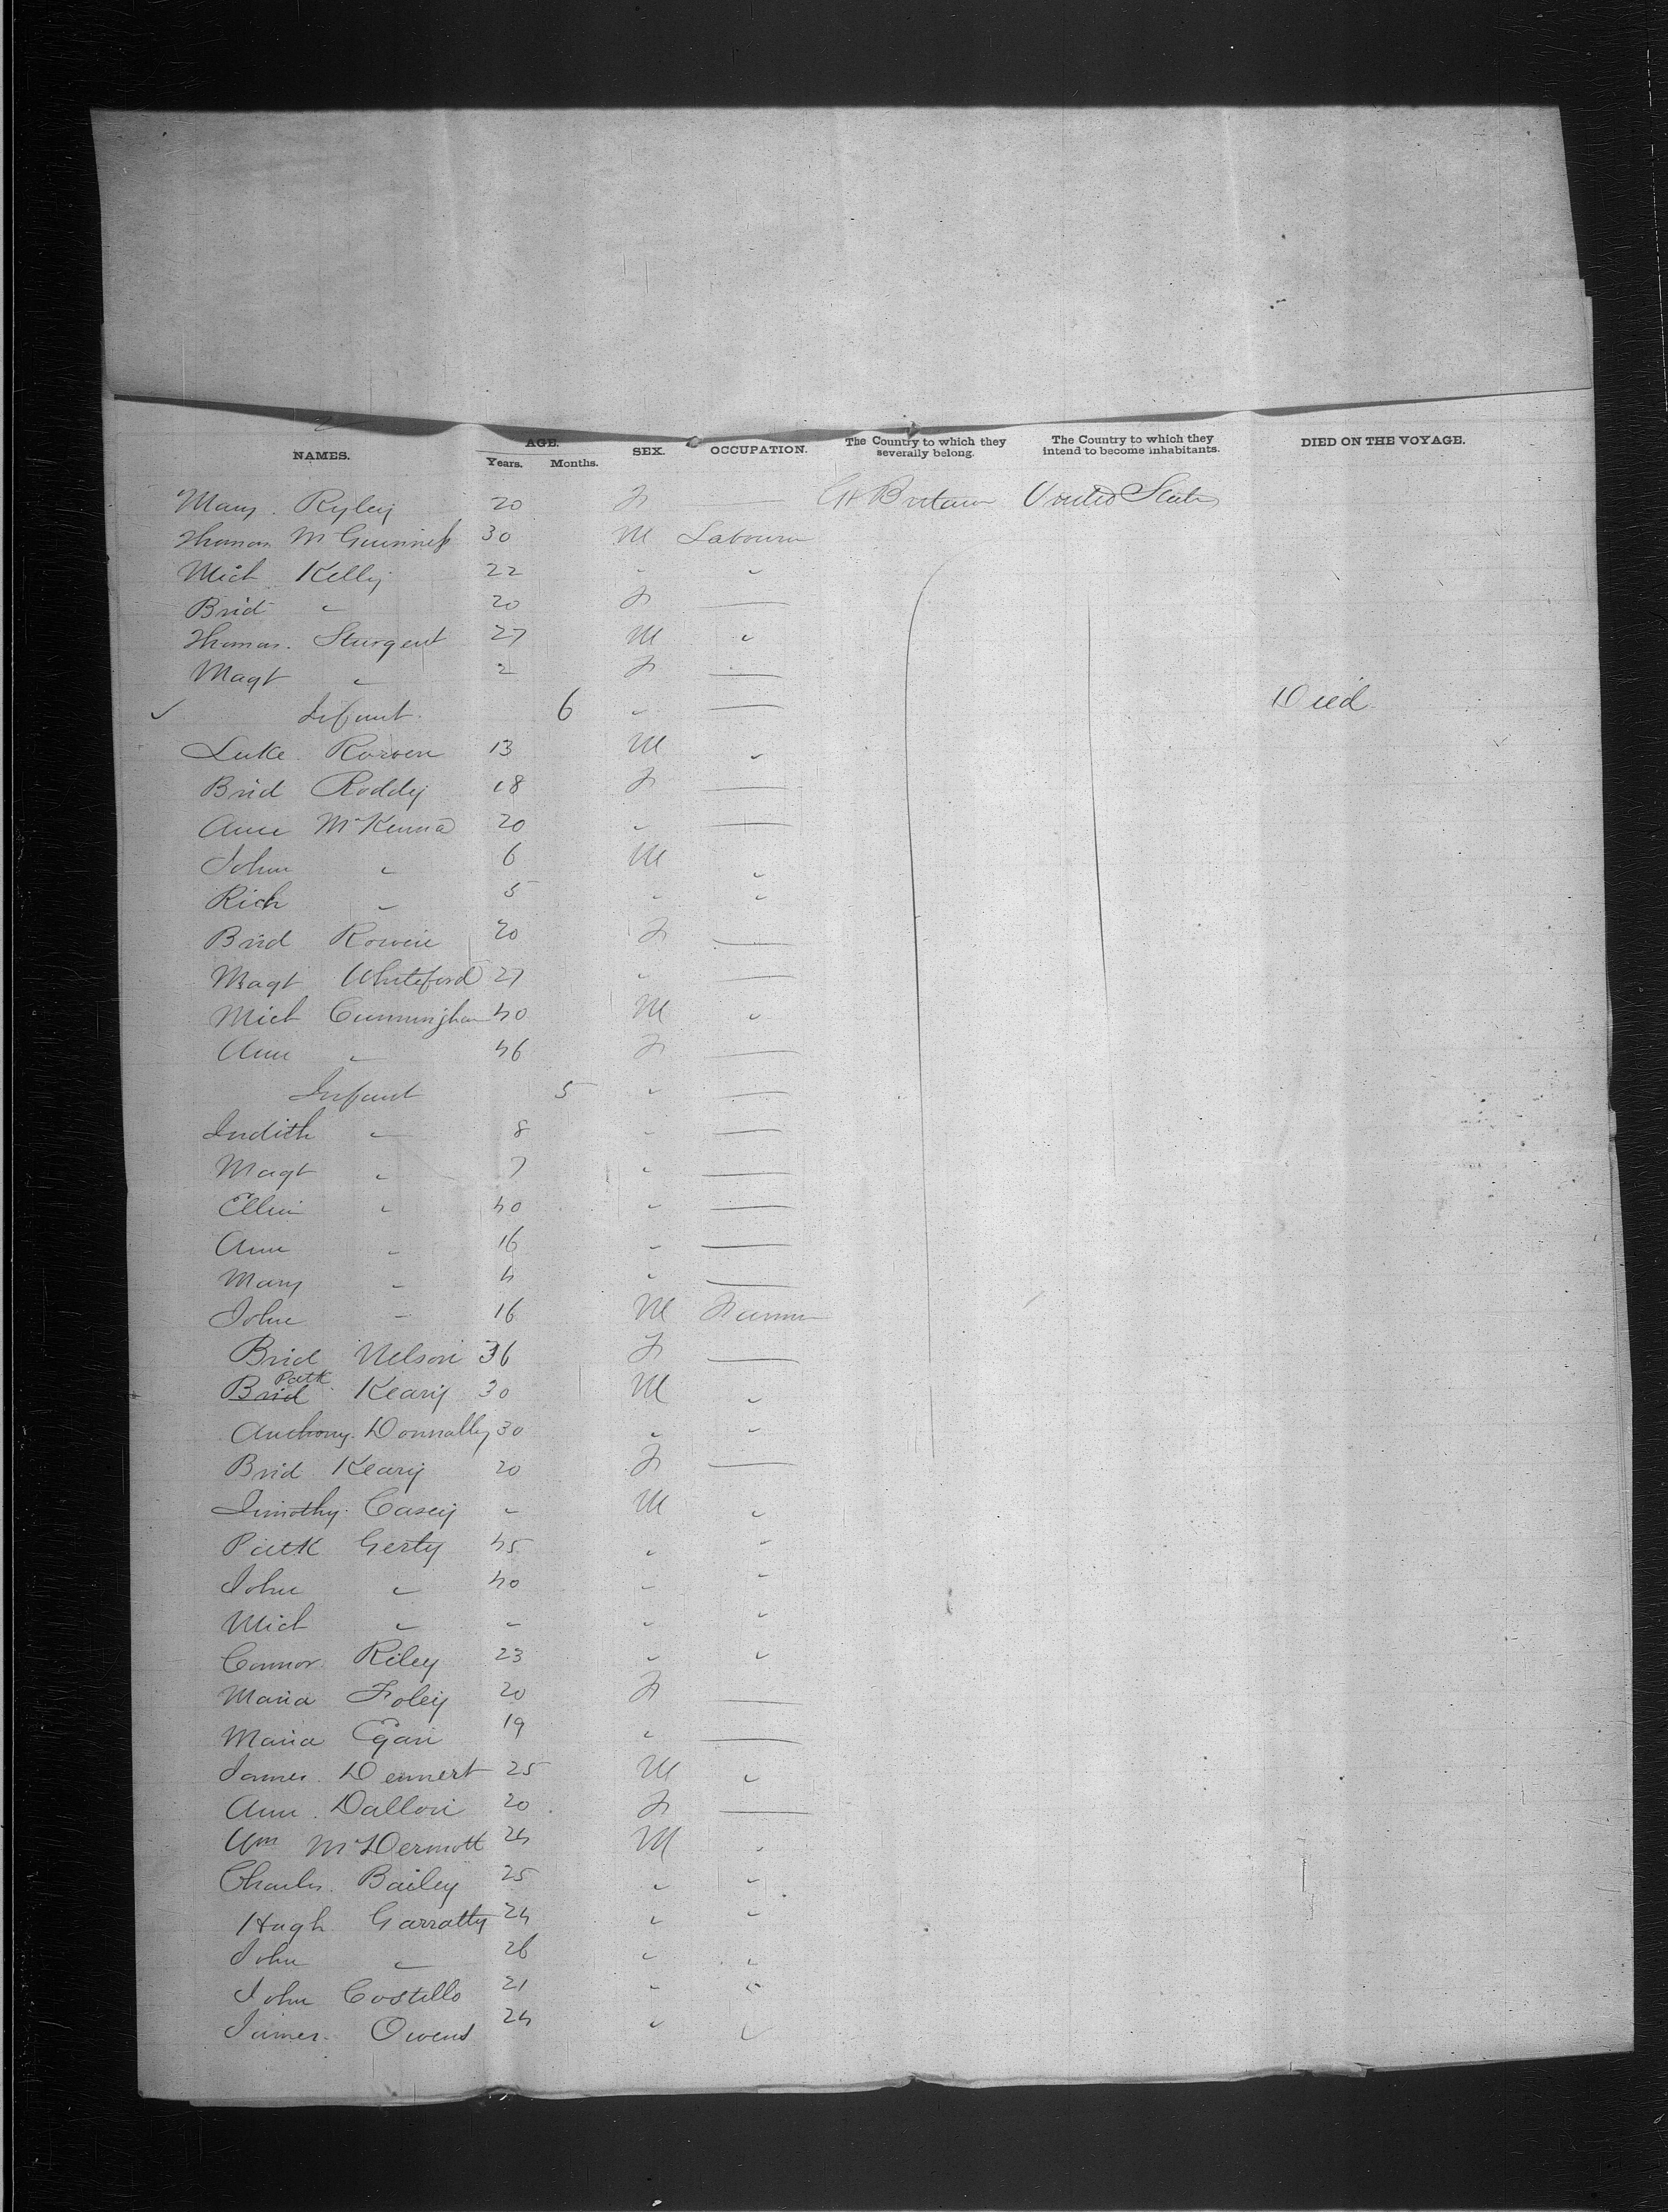 NAMES. AGE. Years. Months. SEX. OCCUPATION. The Country to which they severally belong. The Country to which they intend to become inhabitants. DIED ON THE VOYAGE.
Mary Ryley 20 F — Gt Britain United States
Thomas McGuinness 30 M Labourer
Mich Kelly 22 " "
Brid " 20 F —
Thomas Sturgent 27 M "
Magt " 2 F —
✓ Infant 6 " — Died
Luke Rorven 13 M "
Brid Roddy 18 F —
Ann McKenna 20 " —
John " 6 M "
Rich " 5 " "
Brid Rowen 20 F —
Magt Whiteford 27 " —
Mich Cunningham 40 M "
Ann " 46 F —
Infant 5 " —
Judith " 8 " —
Magt " 7 " —
Ellin " 40 " —
Ann " 16 " —
Mary " 4 " —
John " 16 M Farmer
Brid Nelson 36 F —
Brid Patk Keary 30 M "
Anthony Donnally 30 " "
Brid Keary 20 F —
Timothy Casey " M "
Patk Gerty 45 " "
John " 40 " "
Mich " " " "
Connor Riley 23 " "
Maria Foley 20 F —
Maria Egan 19 " —
James Dennert 25 M "
Ann Dallon 20 F —
Wm McDermott 24 M "
Charles Bailey 25 " "
Hugh Garratty 24 " "
John " 26 " "
John Costello 21 " "
James Owens 24 " "